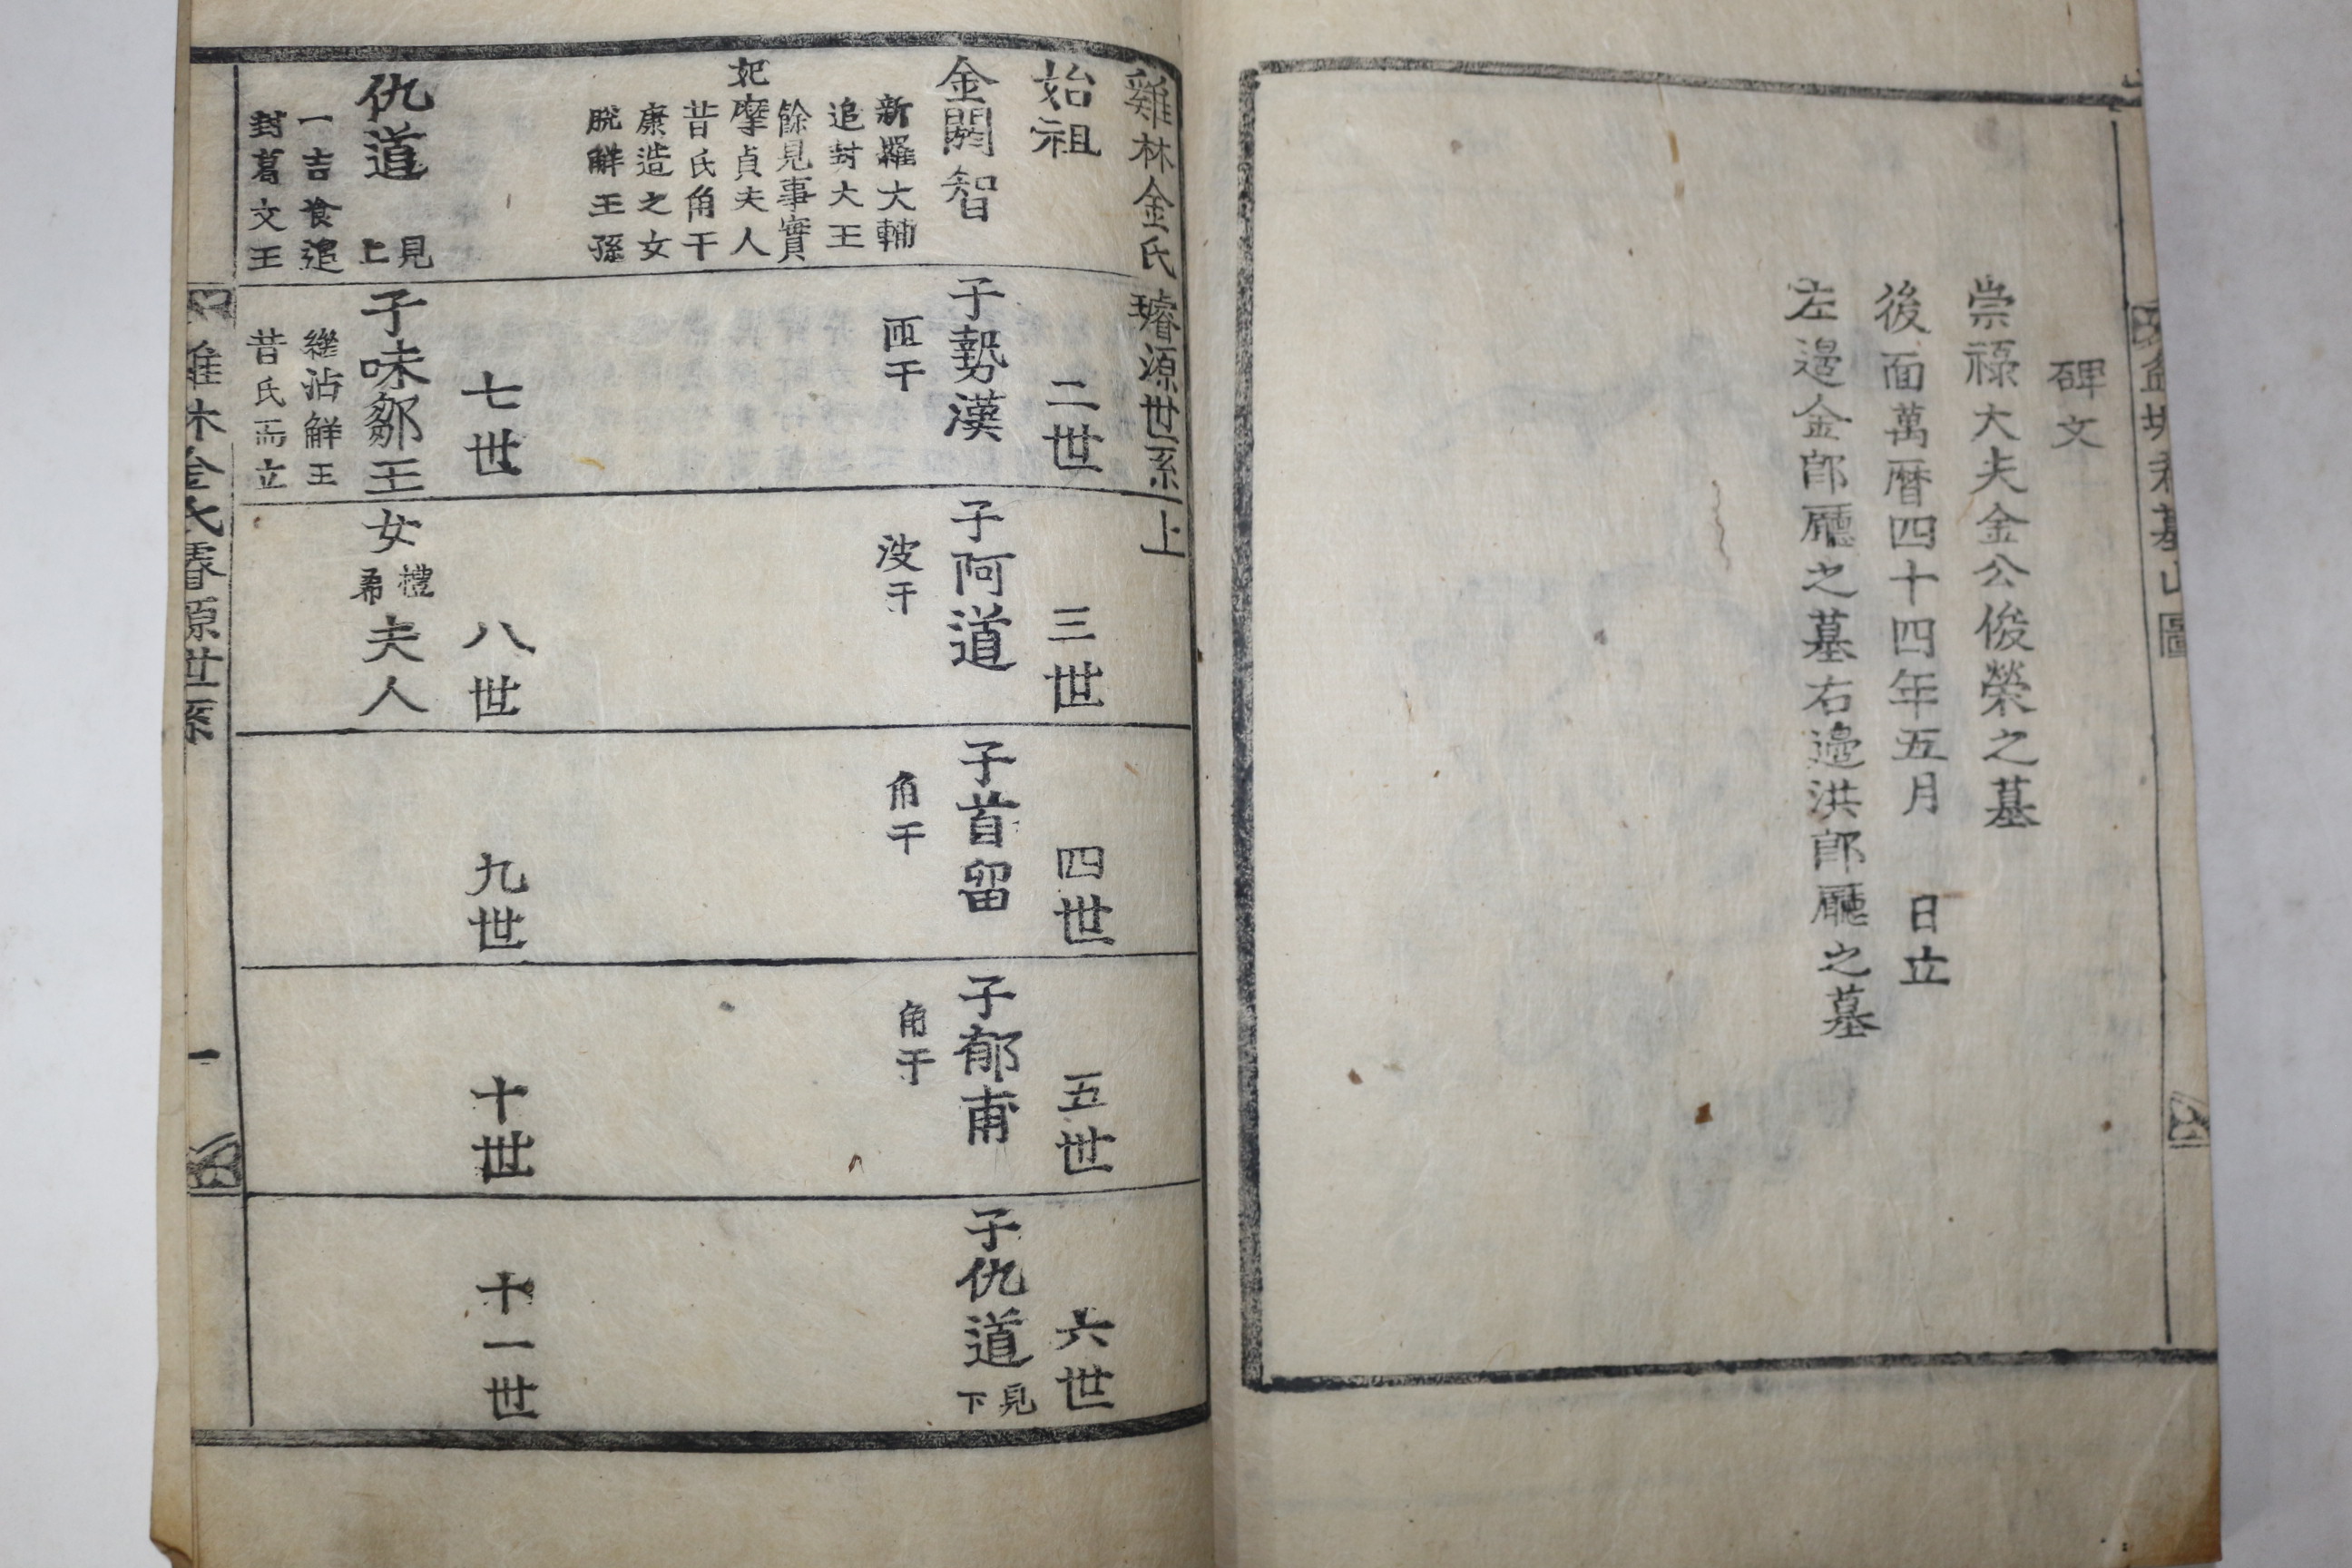 碑文
崇祿大夫金公俊榮之墓
後面萬曆四十四年五月 日立
左邊金郎廳之墓右邊洪郎廳之墓
雞林金氏璿源世系上
始祖
二世
三世
四世
五世
六世
金閼智
新羅大輔
追封大王
餘見事實
妃摩貞夫人
昔氏角干
康造之女
脫解王孫
子勢漢
匝干
子阿道
波干
子首留
角干
子郁甫
角干
子仇道 見下
七世
八世
九世
十世
十一世
仇道 見上
一吉飡追
封葛文王
子味鄒王
繼沾解王
昔氏而立
女禮希夫人
雞林金氏璿源世系 一